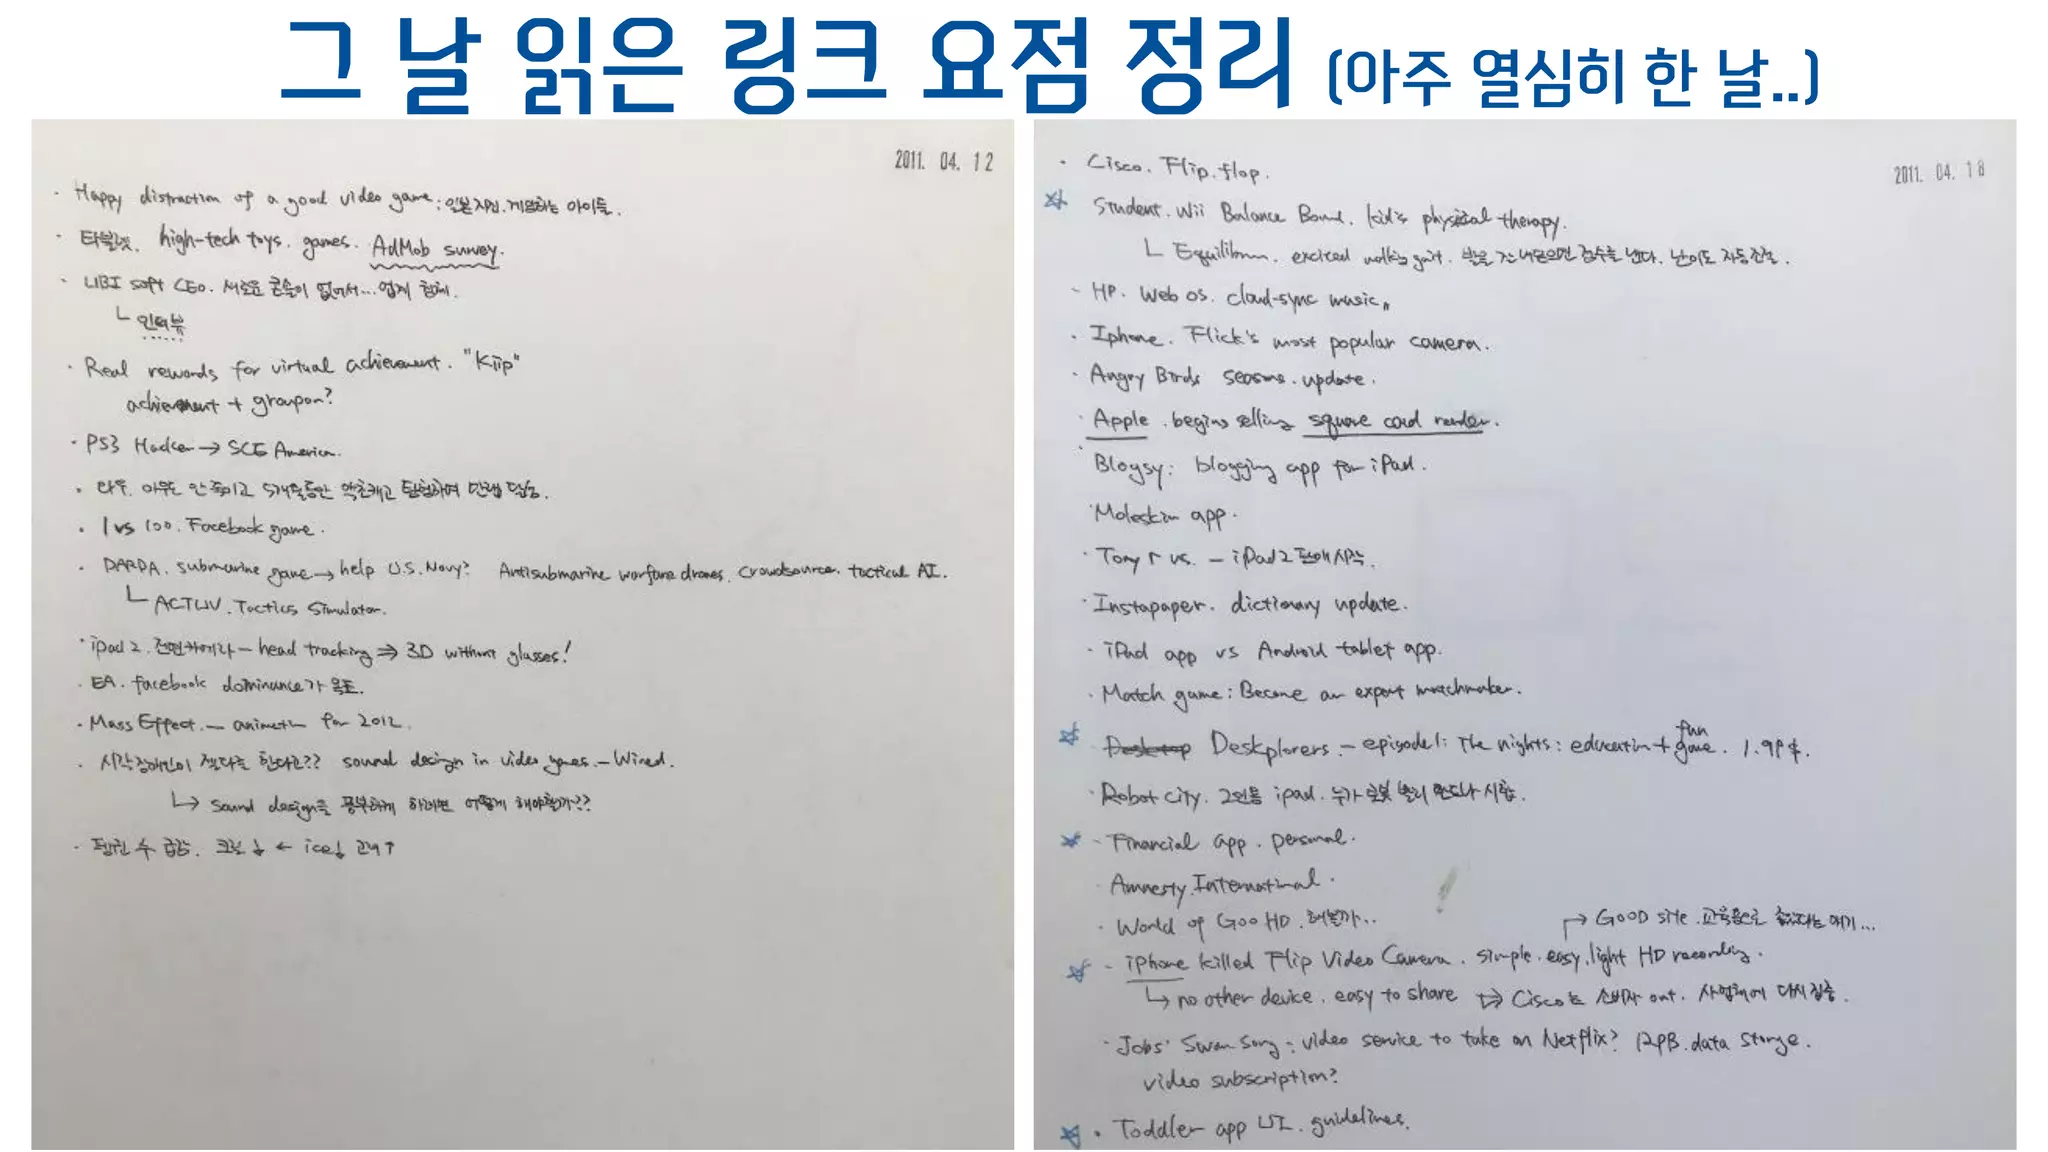 그 날 읽은 링크 요점 정리 (아주 열심히 한 날..)
2011. 04. 12
· Happy distraction of a good video game : 일본 지진. 게임하는 아이들.
· 타블렛. high-tech toys. games. AdMob survey.
· UBI soft CEO. 새로운 콘솔이 없어서... 업계 침체.
└ 인터뷰
· Real rewards for virtual achievement. "Kiip"
achievement + groupon?
· PS3 Hacker → SCE America.
· 와우. 아무도 안 죽이고 5개월동안 약초캐고 탐험하여 만렙 달성.
· 1 vs 100. Facebook game.
· DARPA. submarine game → help U.S. Navy? Antisubmarine warfare drones. crowdsource. tactical AI.
└ ACTUV. Tactics Simulator.
· ipad 2. 전면카메라 - head tracking ⇒ 3D without glasses!
· EA. facebook dominance가 목표.
· Mass Effect. - animation for 2012.
· 시각장애인이 젤다를 한다고?? sound design in video games. - Wired.
└→ sound design을 풍부하게 하려면 어떻게 해야할까??
2011. 04. 18
· Cisco. Flip. flop.
☆ Student. Wii Balance Board. kid's physical therapy.
└ Equilibrium. excited walking gait. 발을 잘 내딛으면 점수를 낸다. 난이도 자동조절.
- HP. Web OS. cloud-sync music
· Iphone. Flick's most popular camera.
· Angry Birds seasons. update.
· Apple. begins selling square card reader.
· Blogsy: blogging app for iPad.
· Moleskin app.
· Tony r vs. - iPad2 판매시작.
· Instapaper. dictionary update.
· iPad app vs Android tablet app.
· Match game: Become an expert matchmaker.
☆ Desktop Deskplorers. - episode1: The nights: education + fun game. 1.99$.
· Robot City. 2인용 ipad. 누가 로봇 빨리 만드나 시합.
☆ - Financial app. personal.
· Amnesty. International.
· World of Goo HD. 해볼까..
→ GOOD site. 교육용으로 좋았다는 얘기...
☆ - iphone killed Flip Video Camera. simple. easy. light HD recording.
└→ no other device. easy to share ⇒ Cisco는 소비자 out. 사업체에 다시 집중.
· Jobs' Swan Song: video service to take on Netflix? 12PB. data storage.
video subscription?
☆ · Toddler app UI. guidelines.